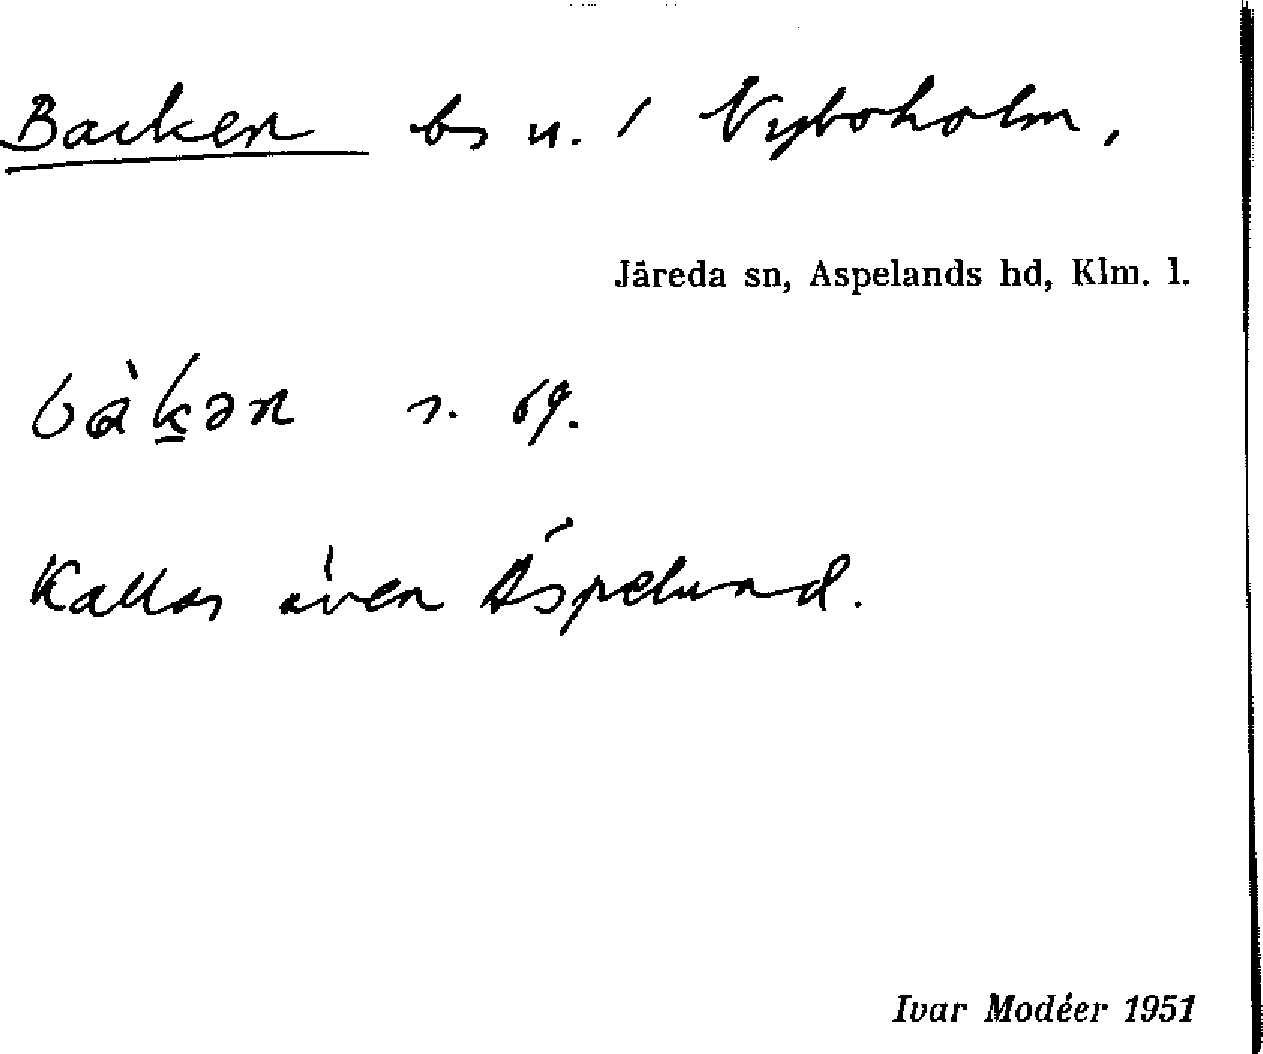 Backen bs u. / Nyboholm,
Järeda sn, Aspelands hd, Klm. l.
bàk̲ən s. 69.
Kallas även Äspelund.
Ivar Modéer 1951